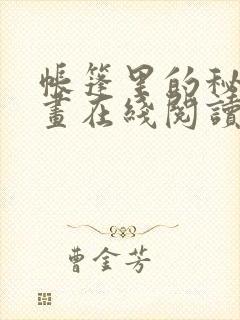 帳篷里的秘
畫在綫閱讀
曹金芳